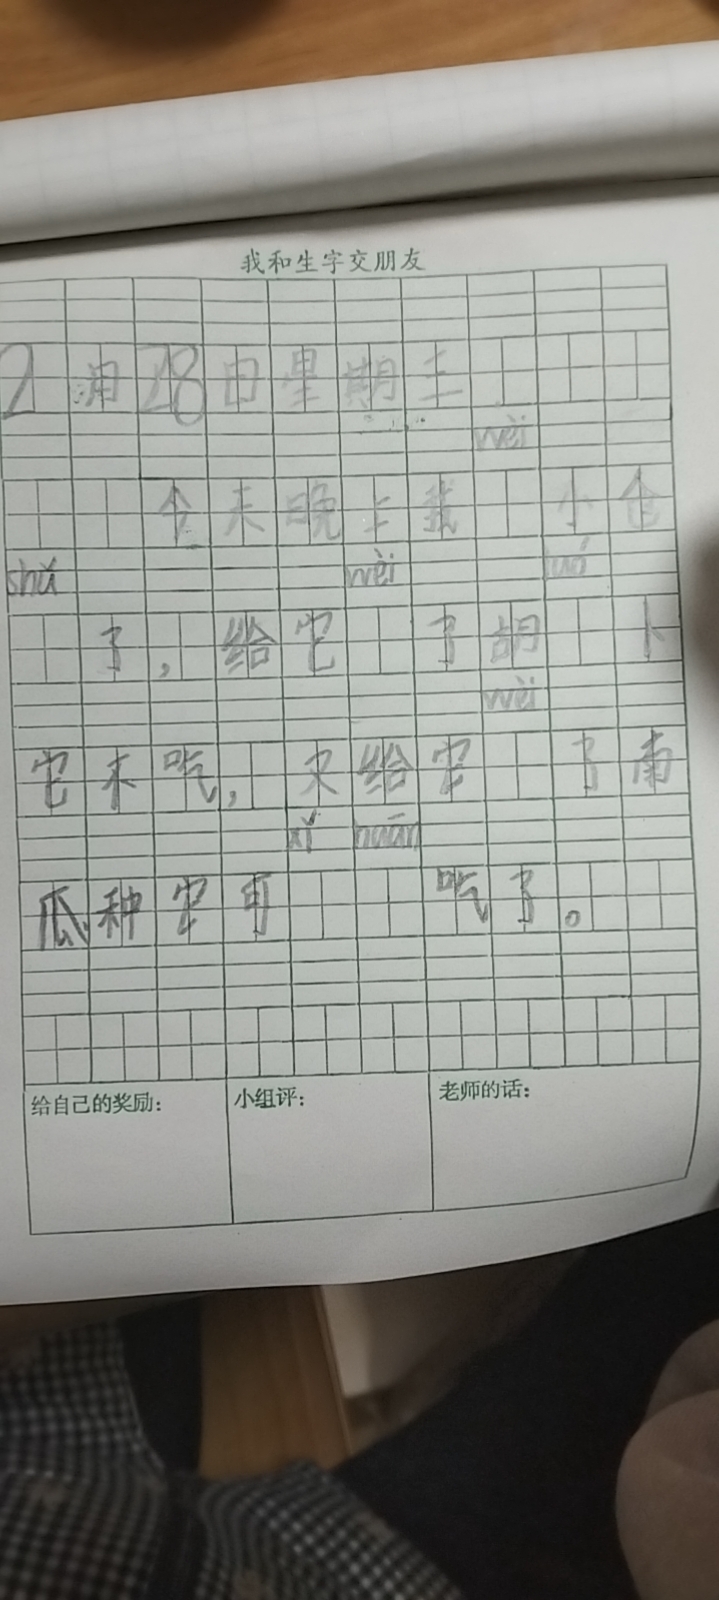 我和生字交朋友
2月28日星期三
wèi
今天晚上我 小仓
shǔ wèi luó
了，给它 了胡 卜
wèi
它不吃，又给它 了南
xǐ huān
瓜种它可 吃了。
给自己的奖励： 小组评： 老师的话：